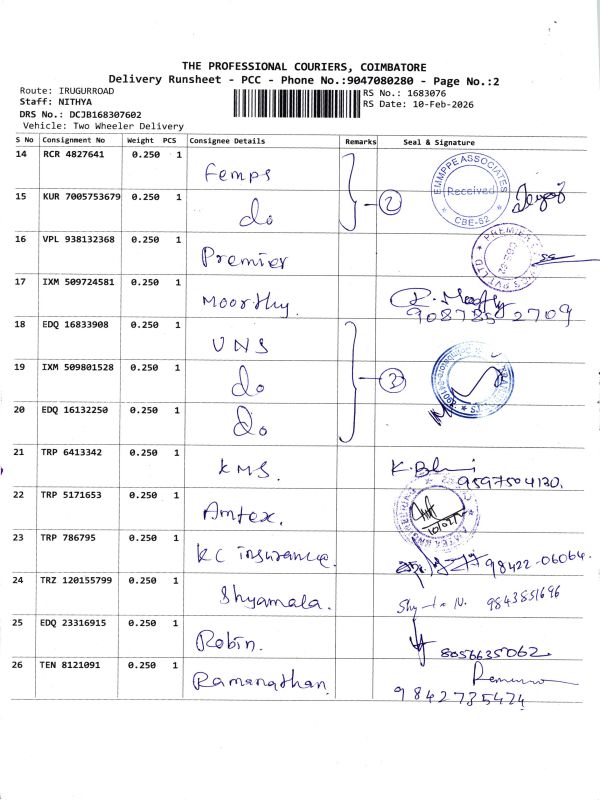 THE PROFESSIONAL COURIERS, COIMBATORE
Delivery Runsheet - PCC - Phone No.:9047080280 - Page No.:2
Route: IRUGURROAD
Staff: NITHYA
DRS No.: DCJB168307602
Vehicle: Two Wheeler Delivery
RS No.: 1683076
RS Date: 10-Feb-2026
S No Consignment No Weight PCS Consignee Details Remarks Seal & Signature
14 RCR 4827641 0.250 1 Femps EMMPPE ASSOCIATES Received CBE-62
15 KUR 7005753679 0.250 1 do 2
16 VPL 938132368 0.250 1 Premier PREMIER PVT LTD
17 IXM 509724581 0.250 1 Moorthy. R. Moorthy 2709
18 EDQ 16833908 0.250 1 UNS
19 IXM 509801528 0.250 1 do 3
20 EDQ 16132250 0.250 1 do
21 TRP 6413342 0.250 1 KMS. 9597504130.
22 TRP 5171653 0.250 1 Amtex.
23 TRP 786795 0.250 1 KC insurance. 98422-06064.
24 TRZ 120155799 0.250 1 Shyamala. 9843851696
25 EDQ 23316915 0.250 1 Robin. 8056635062.
26 TEN 8121091 0.250 1 Ramanathan. 9842735474